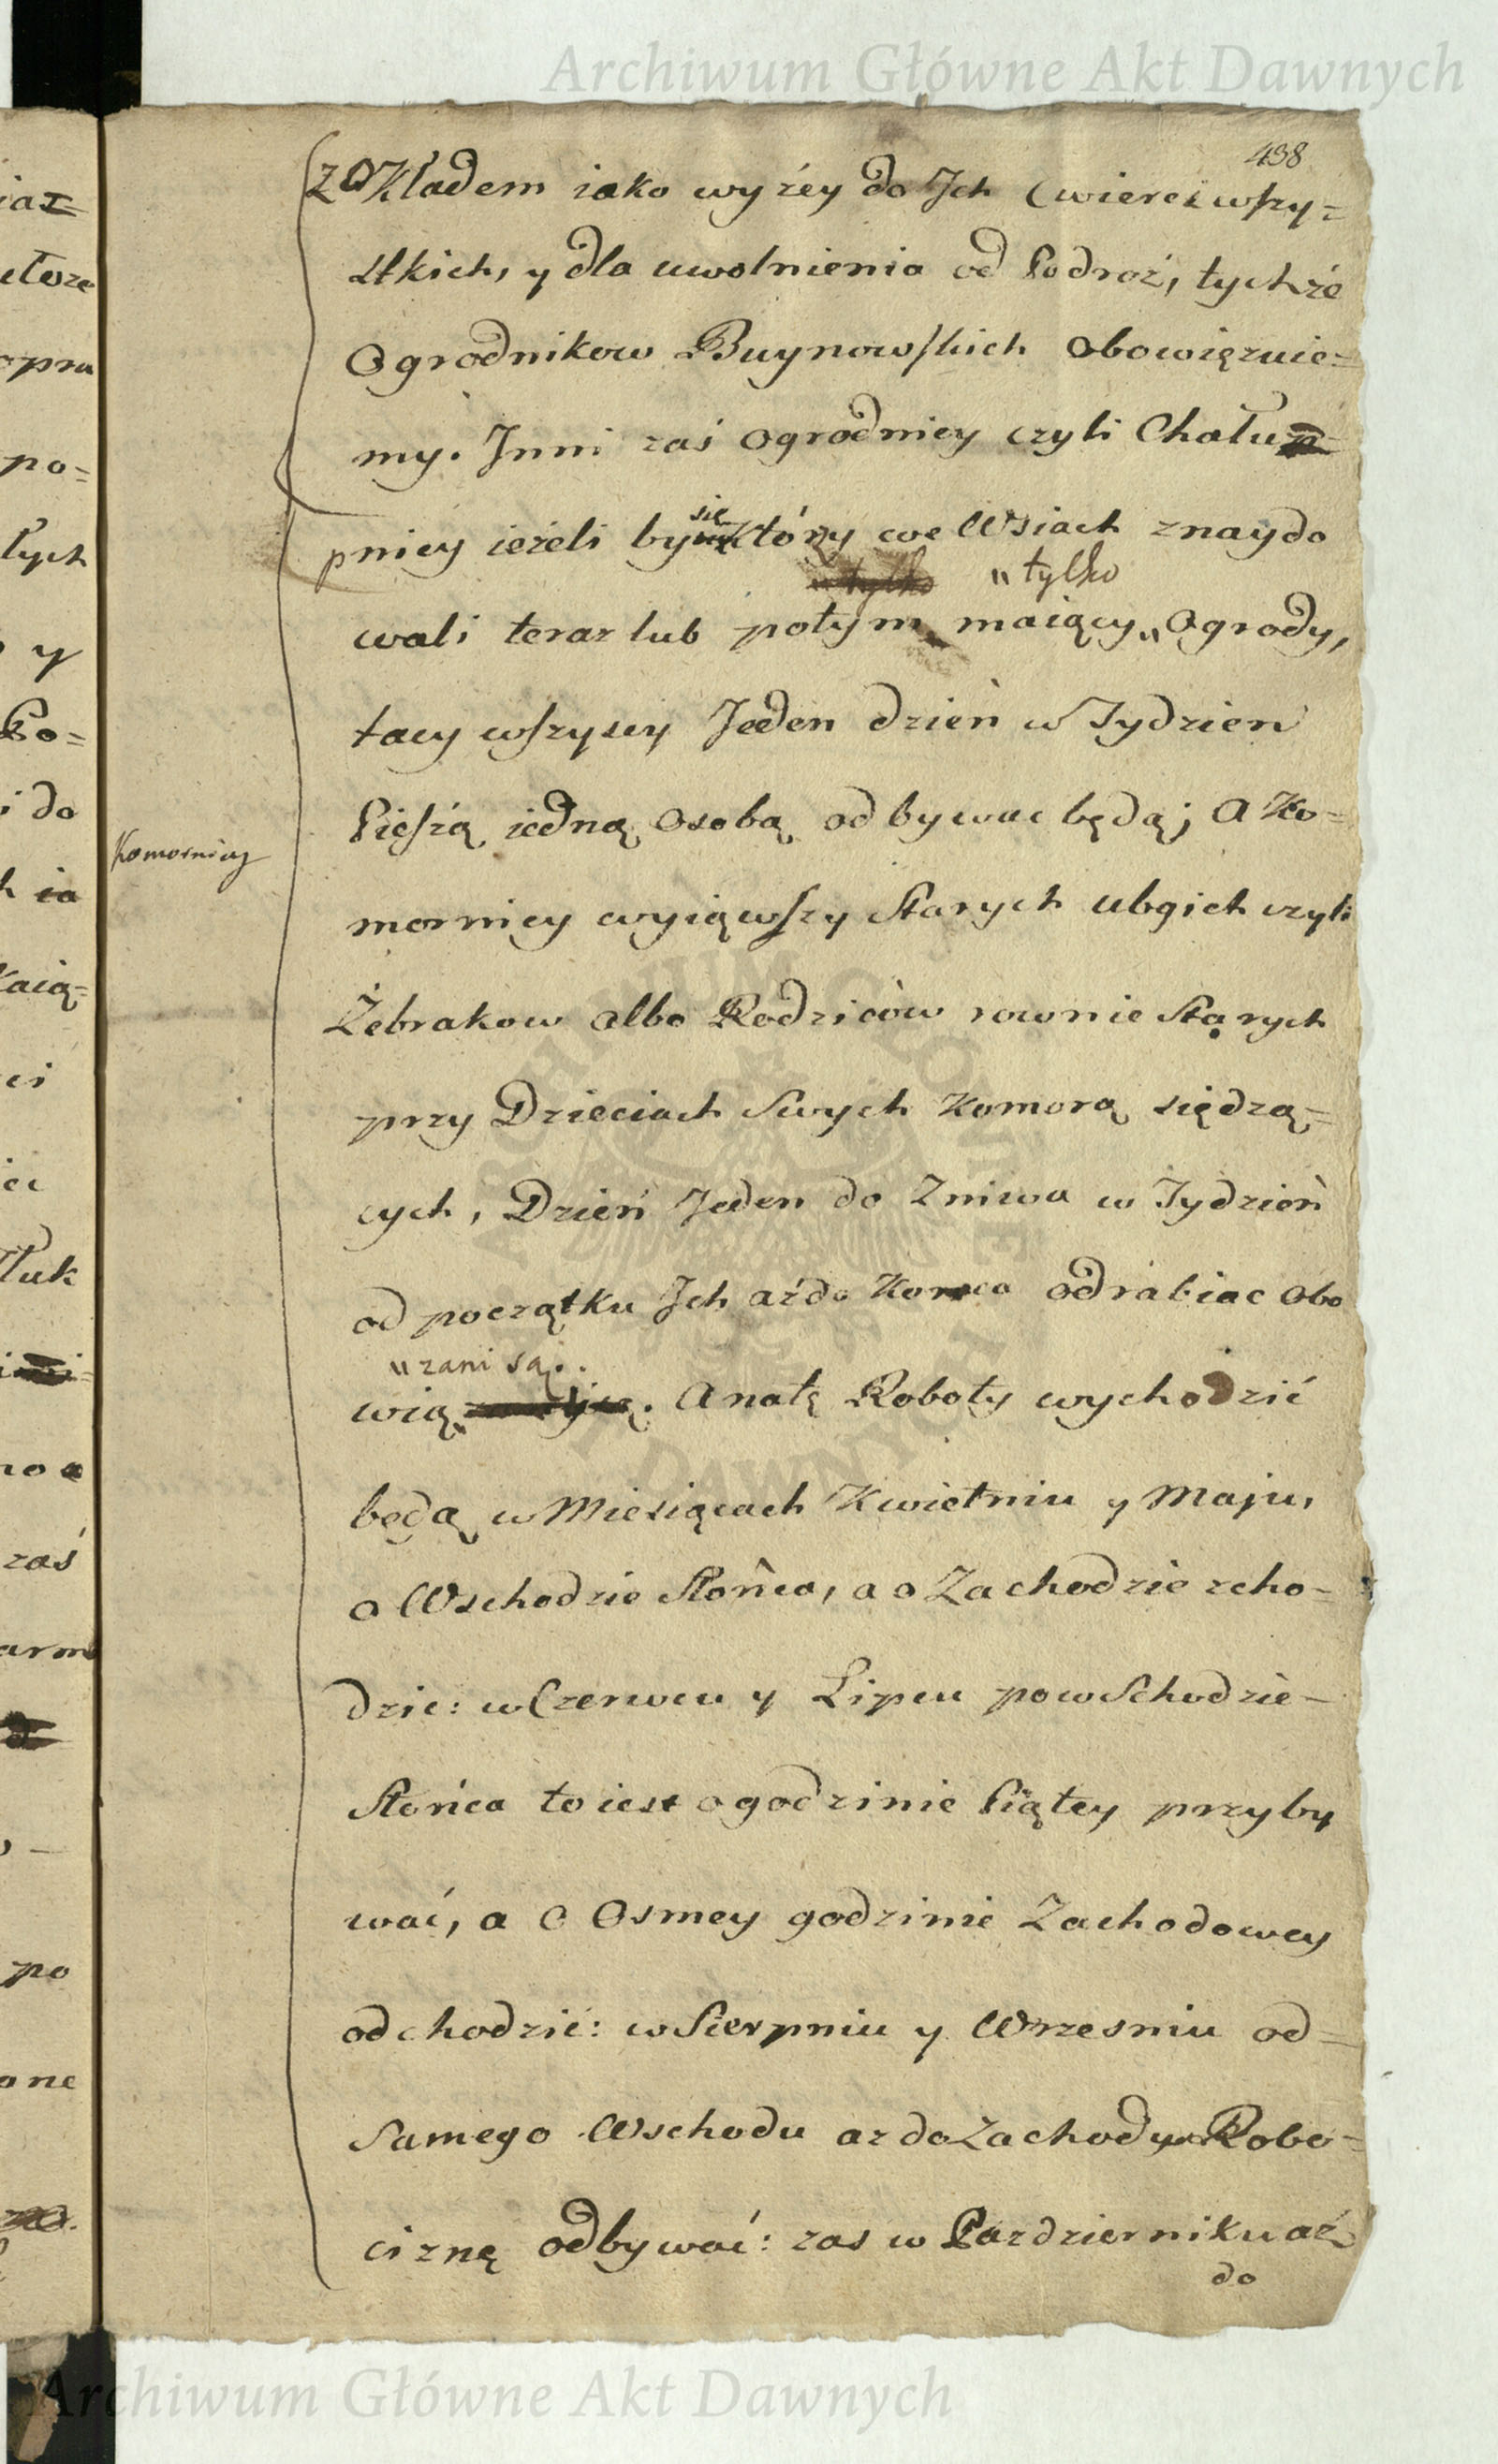 Archiwum Główne Akt Dawnych
438
zokładem iako wyżey do Jch Cwierci wszy=
stkich, y dla uwolnienia od Podroż, tychże
Ogrodnikow Buynowskich obowięzuie=
my. Inni zaś Ogrodnicy czyli Chałup=
pnicy ieżeli by się Którzy we Wsiach znaydo
„ tylko
wali teraz lub potym maiący „ Ogrody,
tacy wszyscy Jeden dzień w Tydzień
Pieszą iedną osobą odbywac będą; A Ko=
Komornicy
mornicy wyiąwszy Starych ubgich czyli
Żebrakow albo Rodziców rownie Starych
przy Dzieciach Swych Komorą siędzą=
cych, Dzień Jeden do Zniwa w Tydzień
od początku Jch aż do Konca odrabiac obo
„ zani są.
wią. A na tę Roboty wychodzić
będą w Miesiącach Kwietniu y Maju,
o Wschodzie Słońca, a o Zachodzie zcho=
dzic: w Czerwcu y Lipcu po wSchodzie
Słońca to iest o godzinie Piątey przyby
wać, a o Osmey godzinie Zachodowey
odchodzić: w Sierpniu y Wrzesniu od=
Samego Wschodu az do Zachodu Robo=
ciznę odbywać: zas w Pazdzierniku aż
do
Archiwum Główne Akt Dawnych